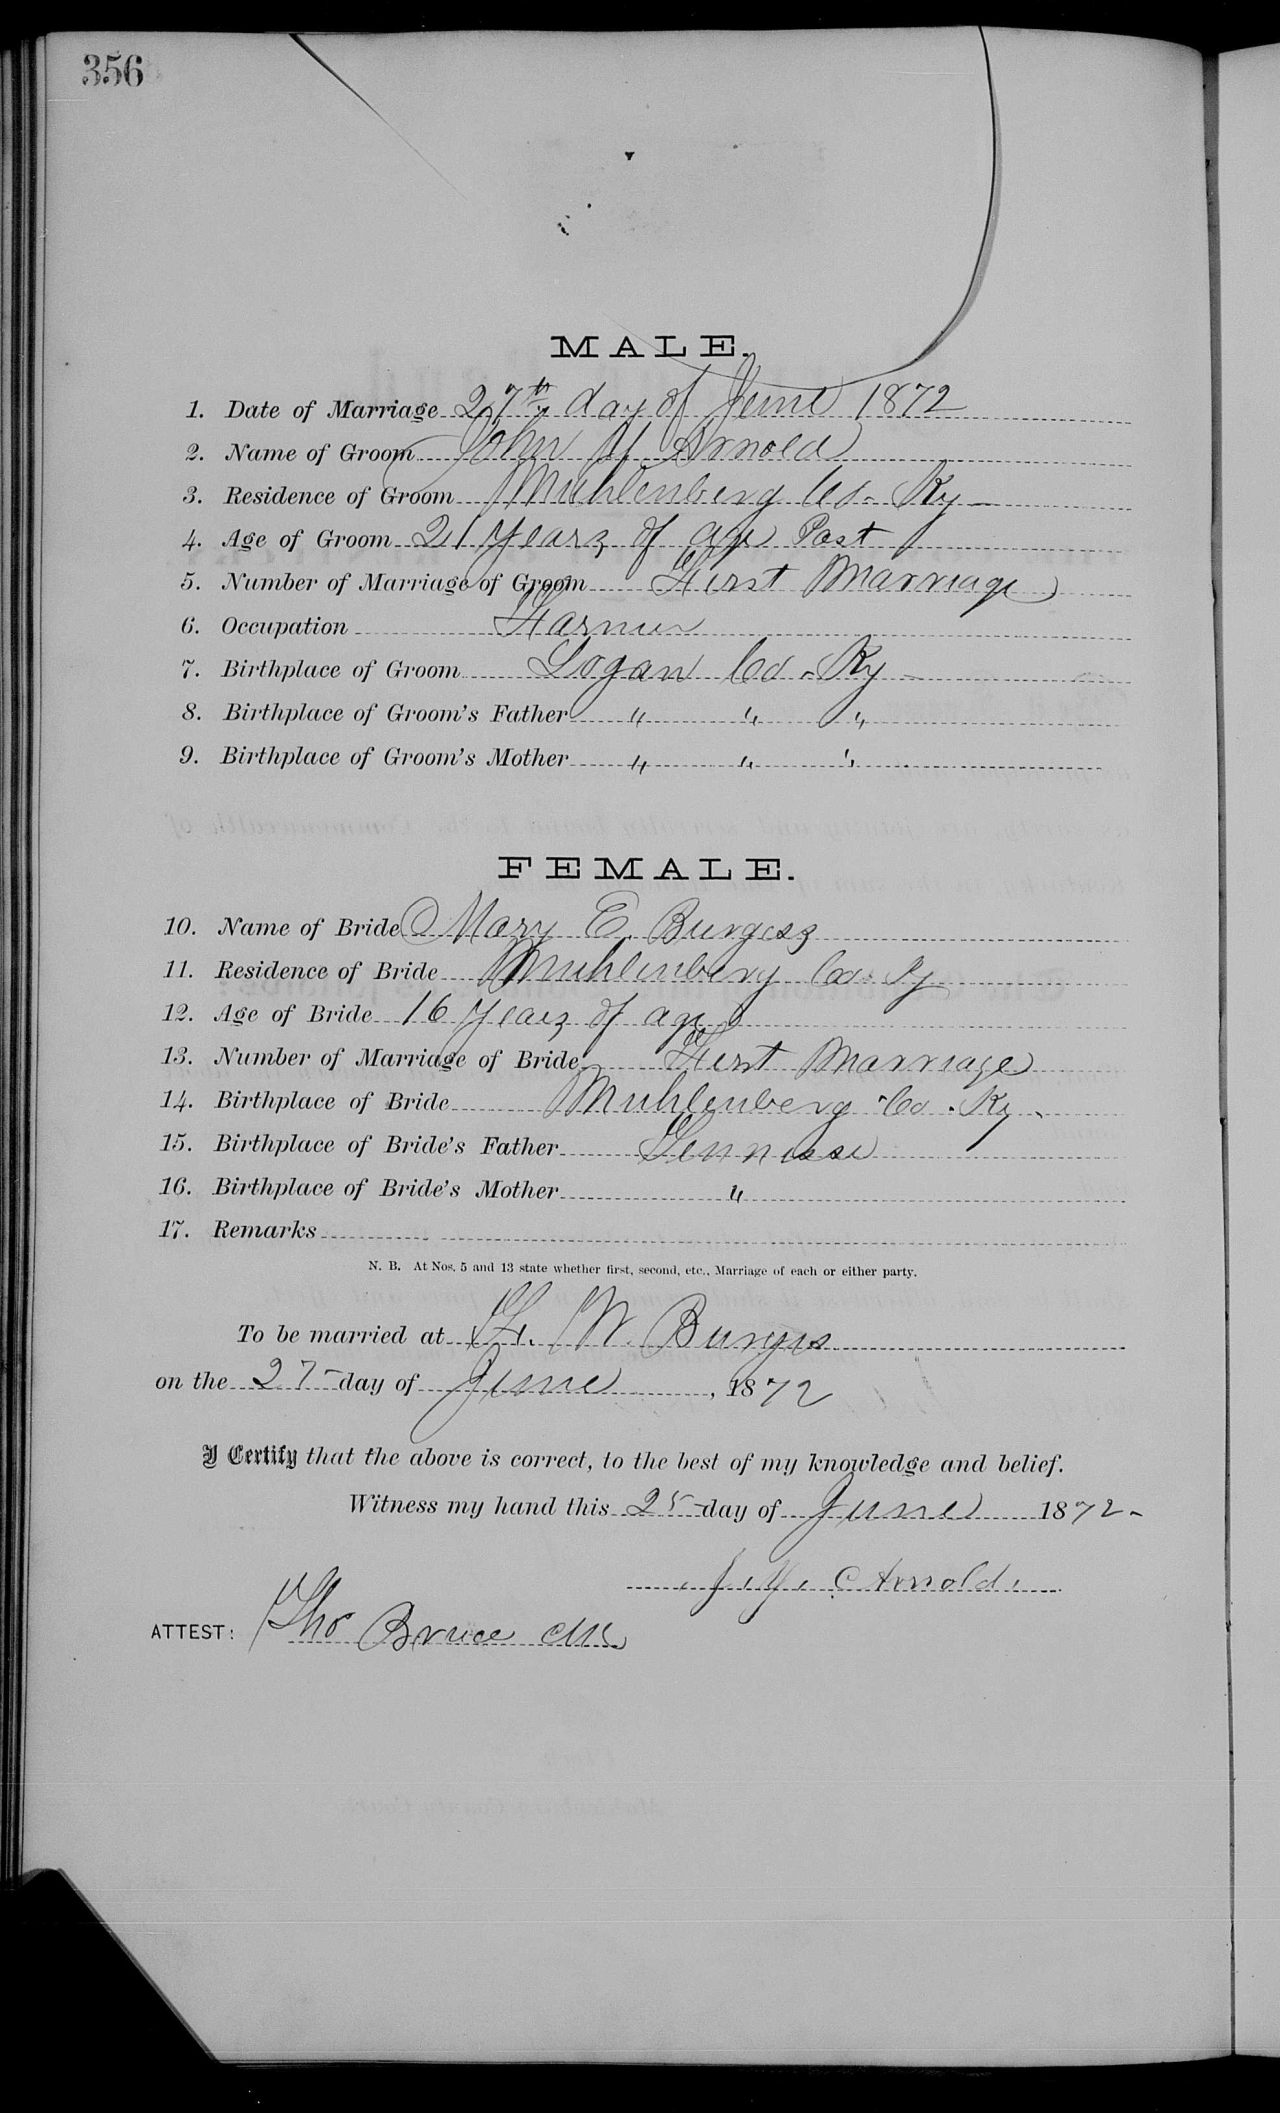 356
MALE.
1. Date of Marriage 27th day of June 1872
2. Name of Groom John Y. Arnold
3. Residence of Groom Muhlenberg Co. Ky
4. Age of Groom 21 Years of age Past
5. Number of Marriage of Groom First Marriage
6. Occupation Farmer
7. Birthplace of Groom Logan Co. Ky
8. Birthplace of Groom's Father " " "
9. Birthplace of Groom's Mother " " "
FEMALE.
10. Name of Bride Mary E. Burgess
11. Residence of Bride Muhlenberg Co. Ky
12. Age of Bride 16 Years of age
13. Number of Marriage of Bride First Marriage
14. Birthplace of Bride Muhlenberg Co. Ky.
15. Birthplace of Bride's Father Tennessee
16. Birthplace of Bride's Mother "
17. Remarks
N. B. At Nos. 5 and 13 state whether first, second, etc., Marriage of each or either party.
To be married at W. Burges
on the 27 day of June, 1872
I Certify that the above is correct, to the best of my knowledge and belief.
Witness my hand this 25 day of June 1872
J. Y. Arnold.
ATTEST: Tho Bruce Clk